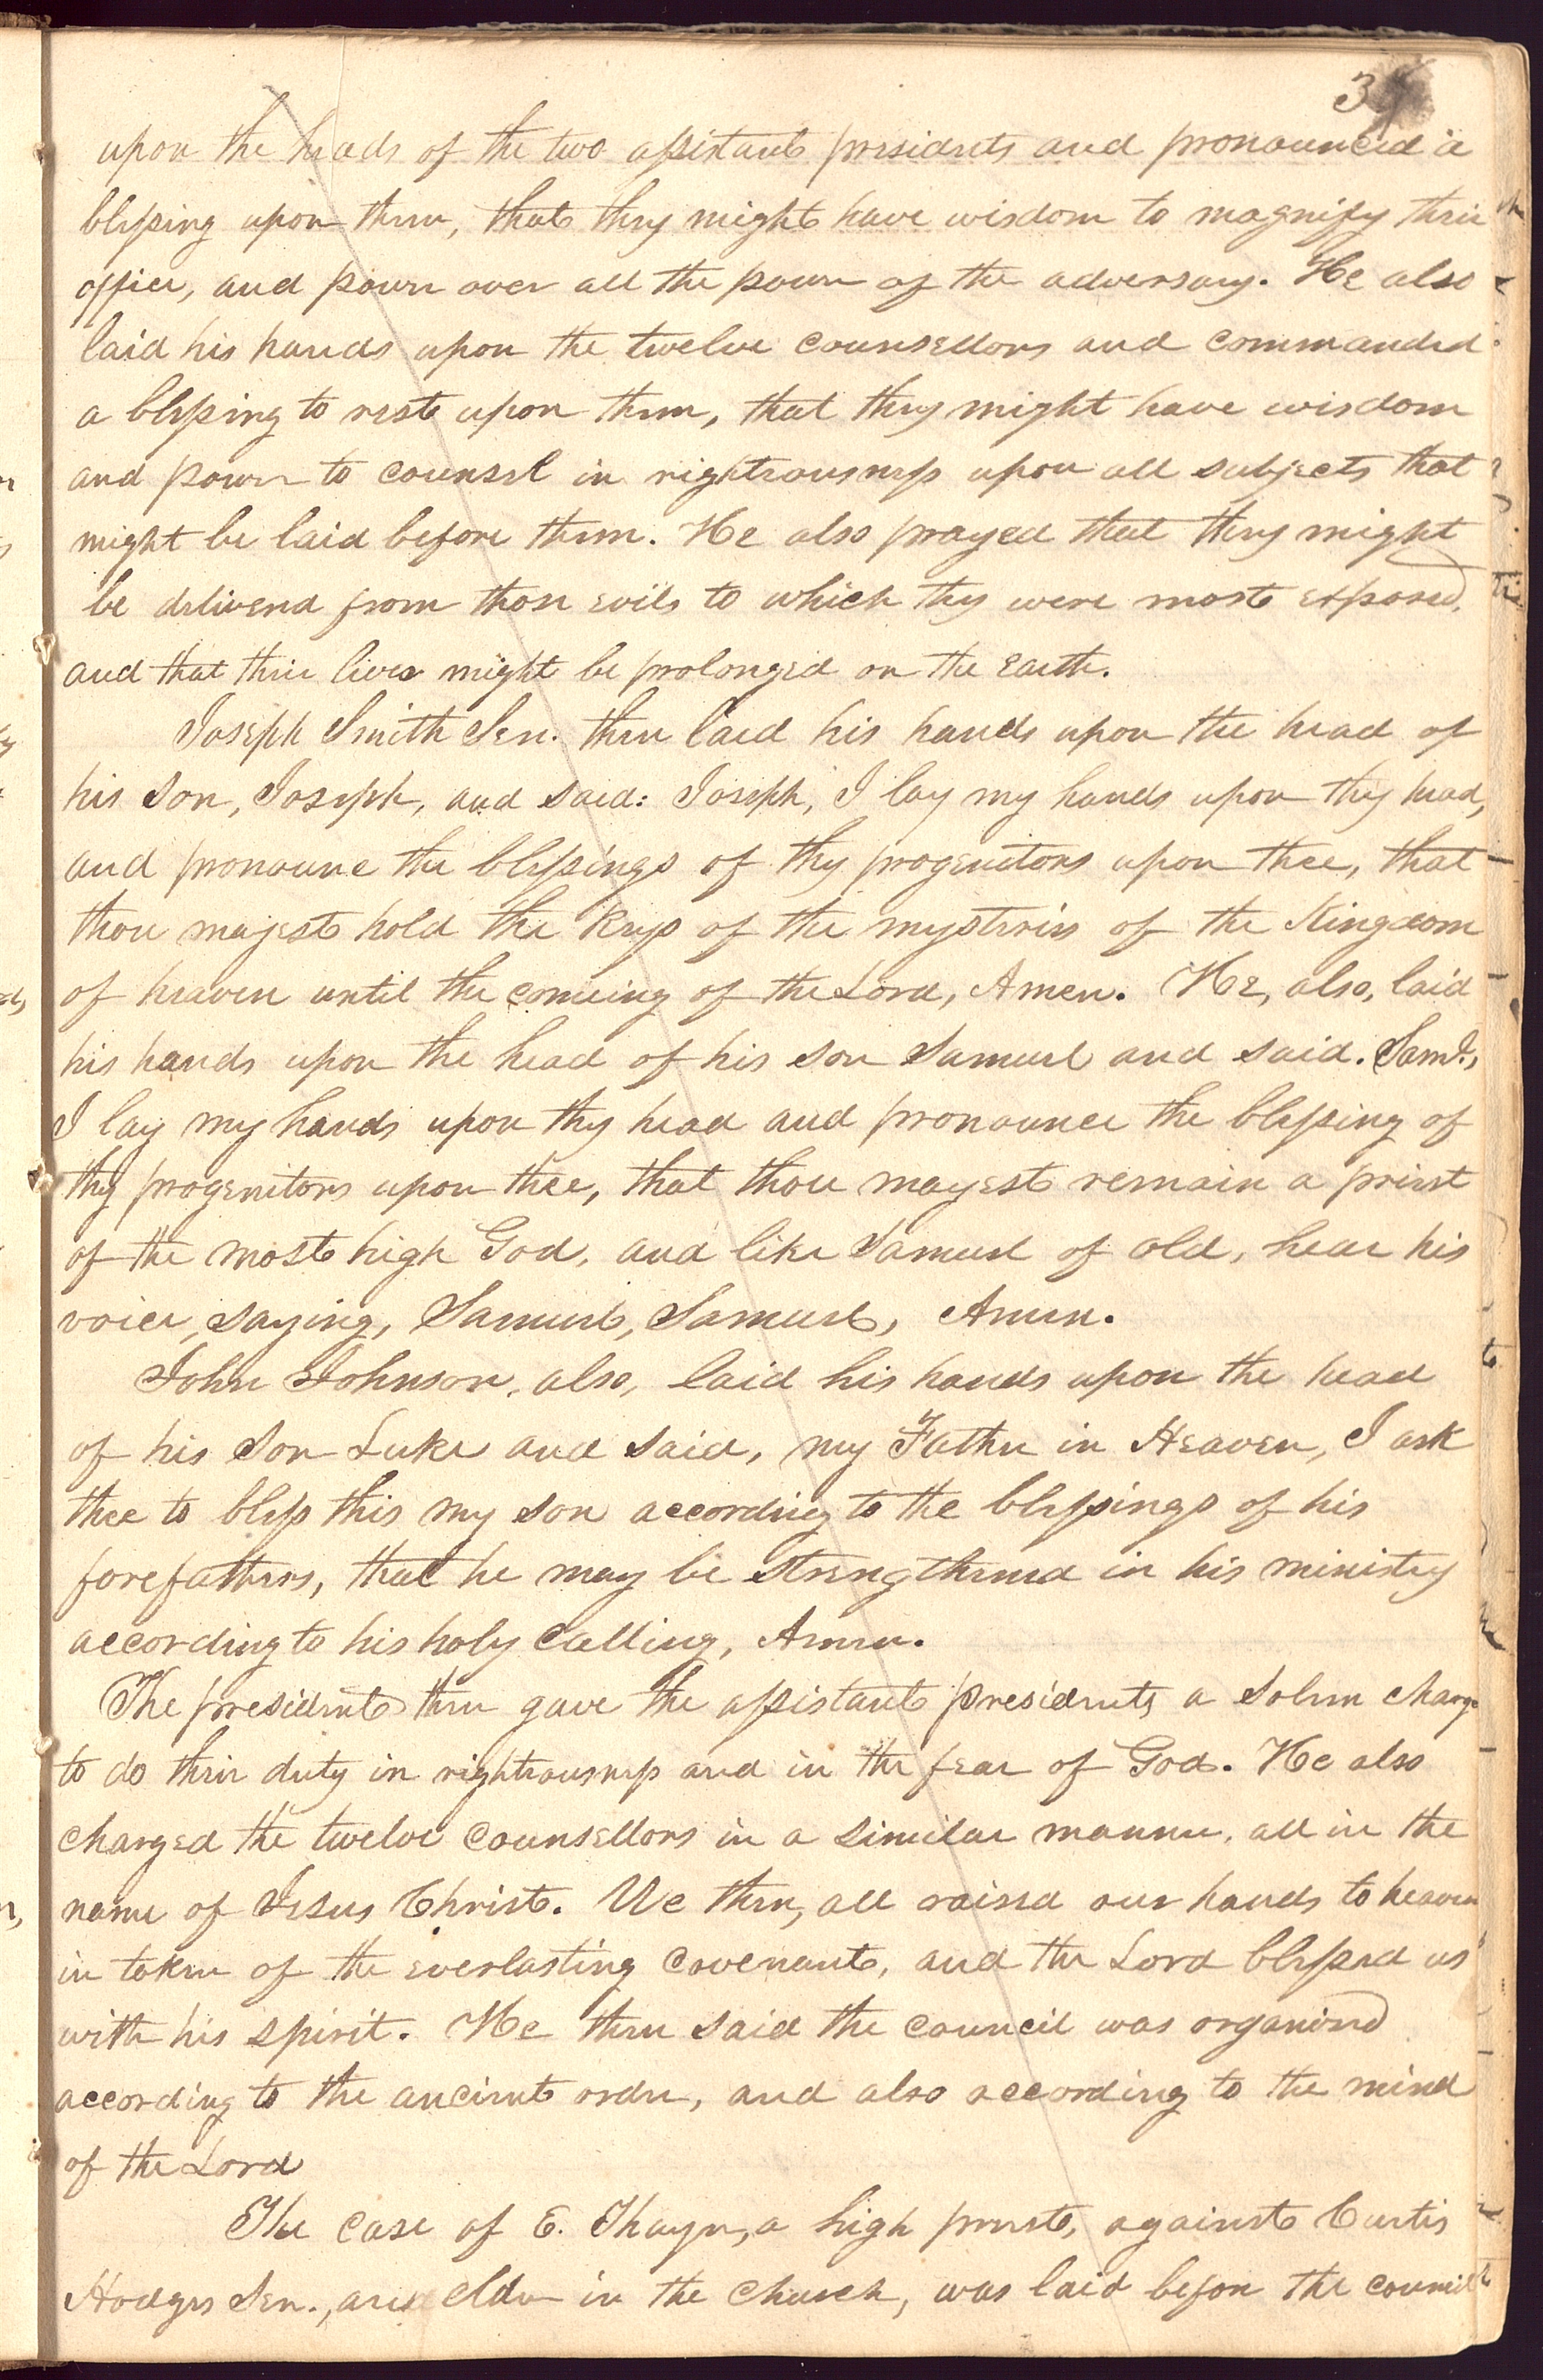 upon the heads of the two assistant presidents and pronounced a
blessing upon them, that they might have wisdom to magnify their
office, and power over all the power of the adversary. He also
laid his hands upon the twelve counsellors and commanded
a blessing to rest upon them, that they might have wisdom
and power to counsel in righteousness upon all subjects that
might be laid before them. He also prayed that they might
be delivered from those evils to which they were most exposed,
and that their lives might be prolonged on the earth.
Joseph Smith Sen. then laid his hands upon the head of
his son, Joseph, and said: Joseph, I lay my hands upon thy head,
and pronounce the blessings of thy progenitors upon thee, that
thou mayest hold the keys of the mysteries of the Kingdom
of heaven until the comeing of the Lord, Amen. He, also, laid
his hands upon the head of his son Samuel and said. Saml.,
I lay my hands upon thy head and pronounce the blessing of
thy progenitors upon thee, that thou mayest remain a priest
of the most high God, and like Samuel of old, hear his
voice, saying, Samuel, Samuel, Amen.
John Johnson, also, laid his hands upon the head
of his son Luke and said, my Father in Heaven, I ask
thee to bless this my son according to the blessings of his
forefathers, that he may be strengthened in his ministry
according to his holy calling, Amen.
The president then gave the assistant presidents a solem charge
to do their duty in righteousness and in the fear of God. He also
charged the twelve counsellors in a similar manner, all in the
name of Jesus Christ. We then, all raised our hands to heaven
in token of the everlasting covenant, and the Lord blessed us
with his spirit. He then said the council was organized
according to the ancient order, and also according to the mind
of the Lord
The case of E. Thayer, a high priest, against Curtis
Hodges Sen., an elder in the church, was laid before the council